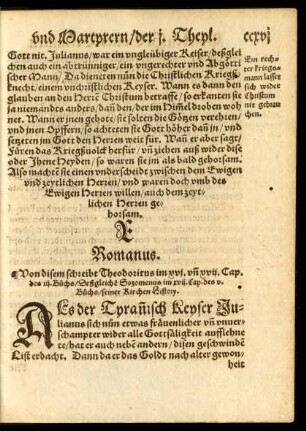 vnd Martyrern/der j. Theyl. ccxvj
Gott nit. Julianus/war ein vngleübiger Keiser/deßglei
chen auch ein abtrünniger/ein vngerechter vnd Abgötti
scher Mann/Da dieneten nůn die Christlichen Kriegß
knecht/einem vnchristlichen Keyser. Wann es dann den
glauben an den Herrē Christum betraffe/so erkanten sie
ja niemandts anders/dañ den/der im Himel droben woh
net. Wann er jnen gebote/sie solten die Götzen verehren/
vnd jnen Opffern/so achteten sie Gott höher dañ jn/vnd
setzeten jm Gott den Herren weit für. Wañ er aber sagt/
Fůren das Kriegßuolck herfür/vñ ziehen auß wider dise
oder Jhene Heyden/so waren sie jm als bald gehorsam.
Also machtē sie einen vnderscheidt zwischen dem Ewigen
vnd zeytlichen Herren/vnd waren doch vmb des
Ewigen Herren willen/auch dem zeyt-
lichen Herren ge-
horsam.
Ein rech-
ter kriegs-
mann lasset
sich wider
Christum
nit gebrau
chen.
Romanus.
Von disem schreibt Theodoritus im xvj. vñ xvij. Cap.
des iij. Bůchs/Deßgleichē Sozomenus im xvij. Cap. des v.
Bůchs/seiner Kirchen History.
ALs der Tyrañisch Keyser Ju-
lianus sich nůn etwas fräuenlicher vñ vnuer-
schampter wider alle Gottsäligkeit aufflehne
te/hat er auch nebē andern/disen geschwindē
List erdacht. Dann da er das Goldt nach alter gewon-
heit